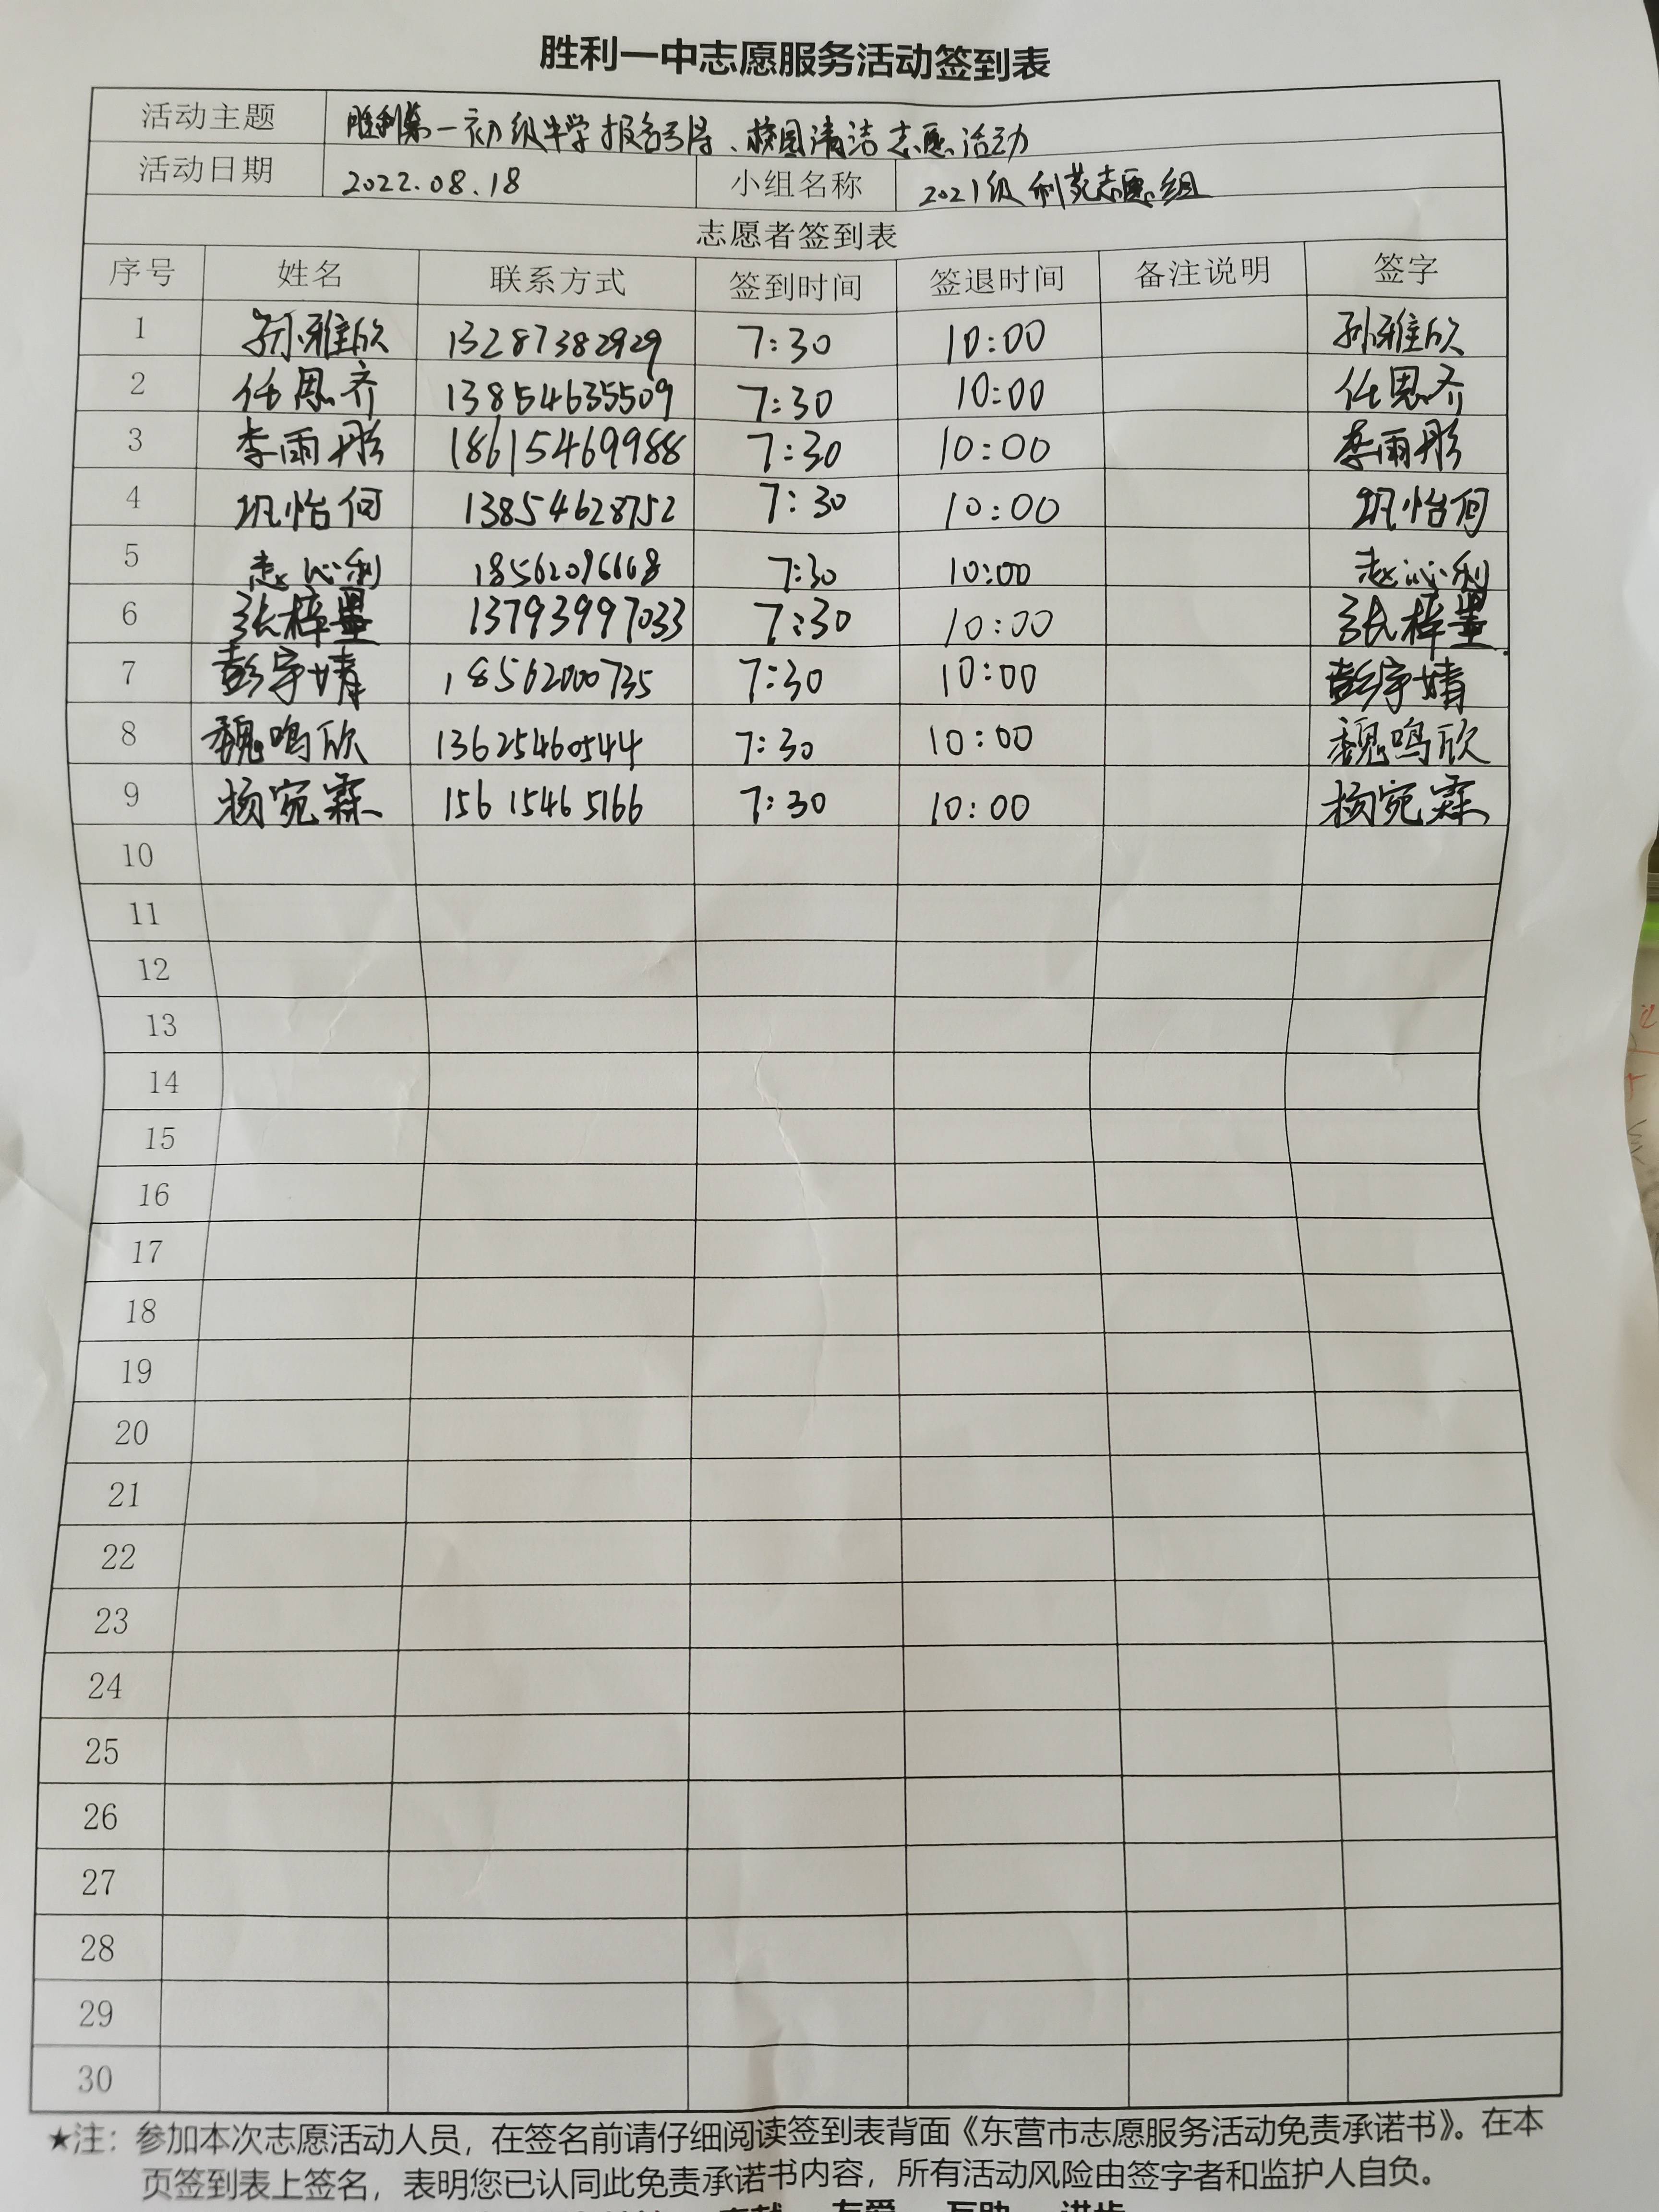 胜利一中志愿服务活动签到表
活动主题 胜利第一初级中学报名引导、校园清洁志愿活动
活动日期 2022.08.18 小组名称 2021级利苑志愿组
志愿者签到表
序号 姓名 联系方式 签到时间 签退时间 备注说明 签字
1 孙雅欣 13287382929 7:30 10:00 孙雅欣
2 任思齐 13854635509 7:30 10:00 任思齐
3 李雨彤 18615469988 7:30 10:00 李雨彤
4 巩怡何 13854628752 7:30 10:00 巩怡何
5 赵沁利 18562096668 7:30 10:00 赵沁利
6 张梓量 13793997033 7:30 10:00 张梓量
7 彭宇婧 18562000735 7:30 10:00 彭宇婧
8 魏鸣欣 13625460544 7:30 10:00 魏鸣欣
9 杨宛霖 15615465166 7:30 10:00 杨宛霖
10
11
12
13
14
15
16
17
18
19
20
21
22
23
24
25
26
27
28
29
30
★注：参加本次志愿活动人员，在签名前请仔细阅读签到表背面《东营市志愿服务活动免责承诺书》。在本
页签到表上签名，表明您已认同此免责承诺书内容，所有活动风险由签字者和监护人自负。
奉献 友爱 互助 进步